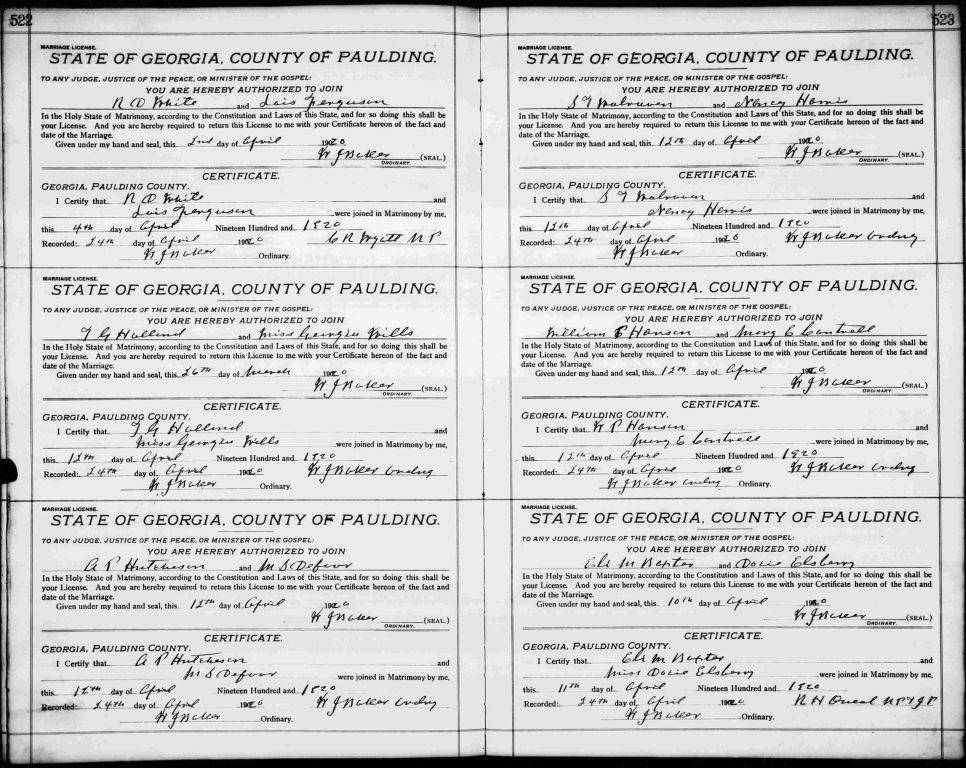 522
MARRIAGE LICENSE.
STATE OF GEORGIA, COUNTY OF PAULDING.
TO ANY JUDGE, JUSTICE OF THE PEACE, OR MINISTER OF THE GOSPEL:
YOU ARE HEREBY AUTHORIZED TO JOIN
R D White and Lois Ferguson
In the Holy State of Matrimony, according to the Constitution and Laws of this State, and for so doing this shall be
your License. And you are hereby required to return this License to me with your Certificate hereon of the fact and
date of the Marriage.
Given under my hand and seal, this 2nd day of April 1920
W J Baker (SEAL.)
ORDINARY.
CERTIFICATE.
GEORGIA, PAULDING COUNTY.
I Certify that R D White and
Lois Ferguson were joined in Matrimony by me,
this 4th day of April Nineteen Hundred and 1920
Recorded: 24th day of April 1920 C R Wyatt N P
W J Baker Ordinary.
MARRIAGE LICENSE.
STATE OF GEORGIA, COUNTY OF PAULDING.
TO ANY JUDGE, JUSTICE OF THE PEACE, OR MINISTER OF THE GOSPEL:
YOU ARE HEREBY AUTHORIZED TO JOIN
T G Holland and Miss Georgia Mills
In the Holy State of Matrimony, according to the Constitution and Laws of this State, and for so doing this shall be
your License. And you are hereby required to return this License to me with your Certificate hereon of the fact and
date of the Marriage.
Given under my hand and seal, this 26th day of March 1920
W J Baker (SEAL.)
ORDINARY.
CERTIFICATE.
GEORGIA, PAULDING COUNTY.
I Certify that T G Holland and
Miss Georgia Mills were joined in Matrimony by me,
this 12th day of April Nineteen Hundred and 1920
Recorded: 24th day of April 1920 W J Baker Ordny
W J Baker Ordinary.
MARRIAGE LICENSE.
STATE OF GEORGIA, COUNTY OF PAULDING.
TO ANY JUDGE, JUSTICE OF THE PEACE, OR MINISTER OF THE GOSPEL:
YOU ARE HEREBY AUTHORIZED TO JOIN
A P Hutcheson and M S Defoor
In the Holy State of Matrimony, according to the Constitution and Laws of this State, and for so doing this shall be
your License. And you are hereby required to return this License to me with your Certificate hereon of the fact and
date of the Marriage.
Given under my hand and seal, this 12th day of April 1920
W J Baker (SEAL.)
ORDINARY.
CERTIFICATE.
GEORGIA, PAULDING COUNTY.
I Certify that A P Hutcheson and
M S Defoor were joined in Matrimony by me,
this 12th day of April Nineteen Hundred and 1920
Recorded: 24th day of April 1920 W J Baker Ordny
W J Baker Ordinary.
523
MARRIAGE LICENSE.
STATE OF GEORGIA, COUNTY OF PAULDING.
TO ANY JUDGE, JUSTICE OF THE PEACE, OR MINISTER OF THE GOSPEL:
YOU ARE HEREBY AUTHORIZED TO JOIN
S T and Nancy Harris
In the Holy State of Matrimony, according to the Constitution and Laws of this State, and for so doing this shall be
your License. And you are hereby required to return this License to me with your Certificate hereon of the fact and
date of the Marriage.
Given under my hand and seal, this 12th day of April 1920
W J Baker (SEAL.)
ORDINARY.
CERTIFICATE.
GEORGIA, PAULDING COUNTY.
I Certify that S T and
Nancy Harris were joined in Matrimony by me,
this 12th day of April Nineteen Hundred and 1920
Recorded: 24th day of April 1920 W J Baker Ordny
W J Baker Ordinary.
MARRIAGE LICENSE.
STATE OF GEORGIA, COUNTY OF PAULDING.
TO ANY JUDGE, JUSTICE OF THE PEACE, OR MINISTER OF THE GOSPEL:
YOU ARE HEREBY AUTHORIZED TO JOIN
William P Hanson and Mary E Cantrell
In the Holy State of Matrimony, according to the Constitution and Laws of this State, and for so doing this shall be
your License. And you are hereby required to return this License to me with your Certificate hereon of the fact and
date of the Marriage.
Given under my hand and seal, this 12th day of April 1920
W J Baker (SEAL.)
ORDINARY.
CERTIFICATE.
GEORGIA, PAULDING COUNTY.
I Certify that W P Hanson and
Mary E Cantrell were joined in Matrimony by me,
this 12th day of April Nineteen Hundred and 1920
Recorded: 24th day of April 1920 W J Baker Ordny
W J Baker Ordny Ordinary.
MARRIAGE LICENSE.
STATE OF GEORGIA, COUNTY OF PAULDING.
TO ANY JUDGE, JUSTICE OF THE PEACE, OR MINISTER OF THE GOSPEL:
YOU ARE HEREBY AUTHORIZED TO JOIN
Eli M Baxter and Docie Elsberry
In the Holy State of Matrimony, according to the Constitution and Laws of this State, and for so doing this shall be
your License. And you are hereby required to return this License to me with your Certificate hereon of the fact and
date of the Marriage.
Given under my hand and seal, this 10th day of April 1920
W J Baker (SEAL.)
ORDINARY.
CERTIFICATE.
GEORGIA, PAULDING COUNTY.
I Certify that Eli M Baxter and
Miss Docie Elsberry were joined in Matrimony by me,
this 11th day of April Nineteen Hundred and 1920
Recorded: 24th day of April 1920 R H Oneal N P & J P
W J Baker Ordinary.